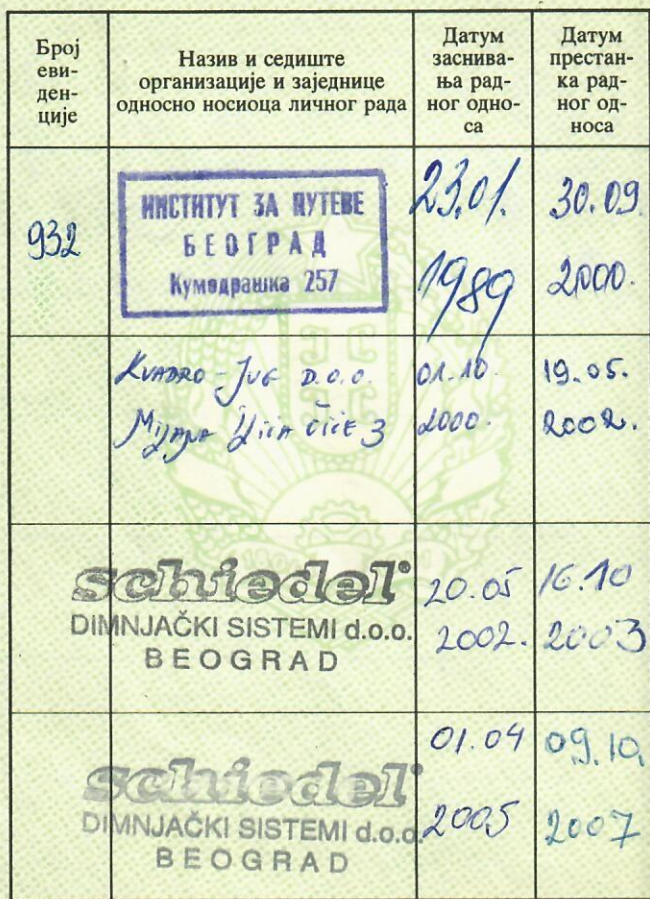 Број
еви-
ден-
ције
Назив и седиште
организације и заједнице
односно носиоца личног рада
Датум
заснива-
ња рад-
ног одно-
са
Датум
престан-
ка рад-
ног од-
носа
932
ИНСТИТУТ ЗА ПУТЕВЕ
БЕОГРАД
Кумодрашка 257
23.01.
1989
30.09.
2000.
KVADRO-JUG D.O.O.
3
01.10.
2000.
19.05.
2002.
schiedel
DIMNJAČKI SISTEMI d.o.o.
BEOGRAD
20.05
2002.
16.10
2003
schiedel
DIMNJAČKI SISTEMI d.o.o.
BEOGRAD
01.04
2005
09.10.
2007